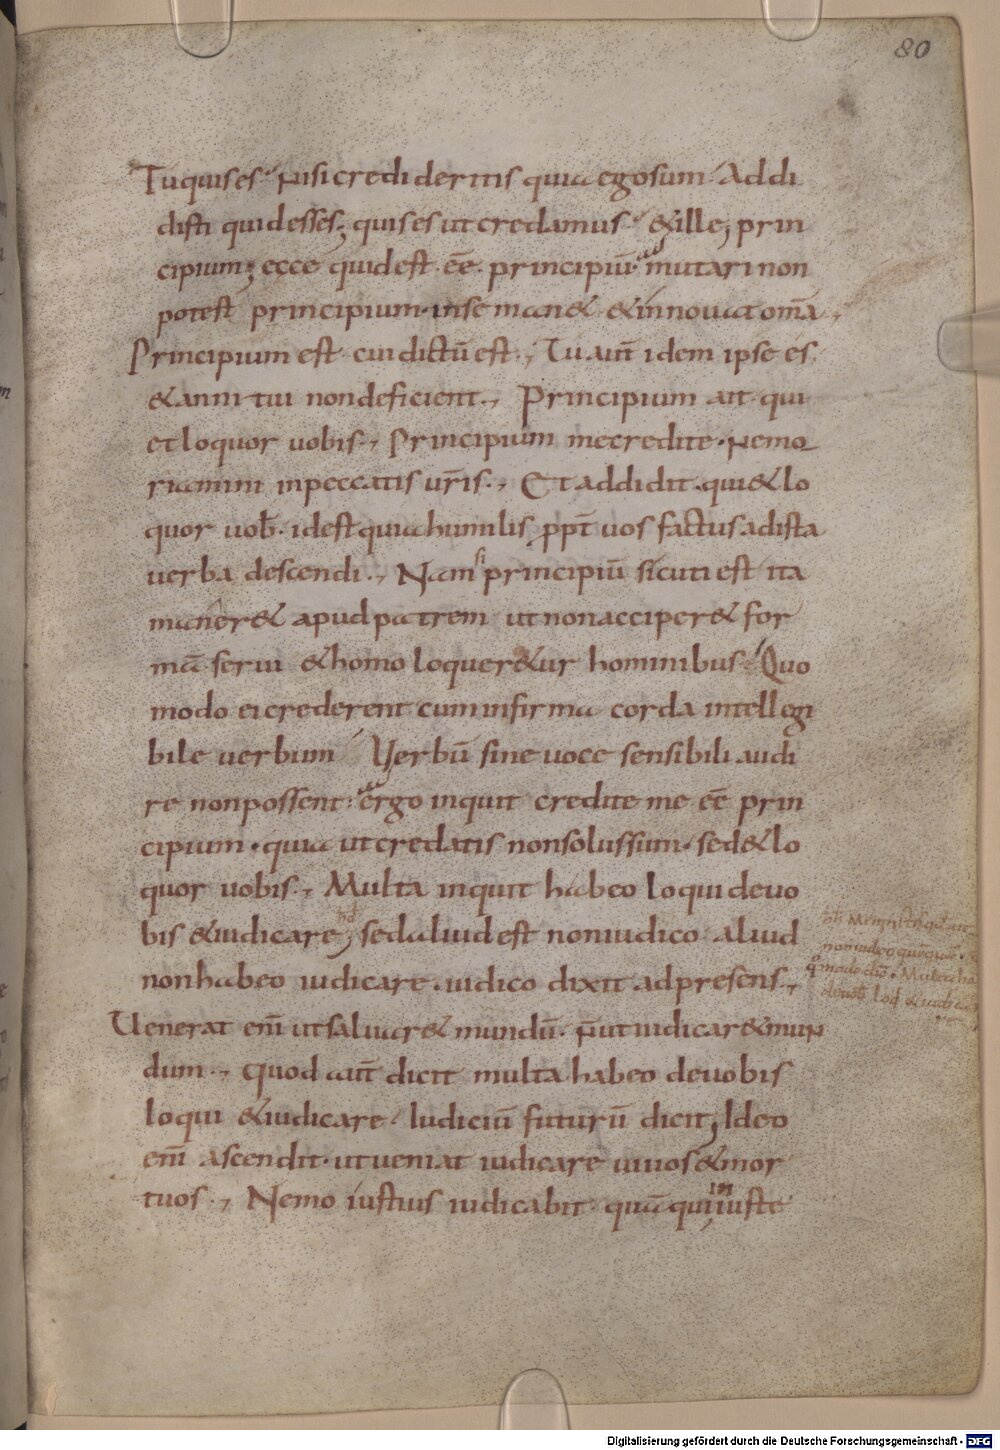 80
Tu quis es Nisi credideritis quia ego sum Addi
disti quid esses; quis es ut credamus & ille; prin
cipium; ecce quid est eē principiū mutari non
potest principium in se man& & innouat om̄a
Principium est cui dictū est. Tu aut̄ idem ipse es
& anni tui non deficient. Principium ait qui
et loquor uobis. Principium me credite. Nemo
riamini in peccatis ur̄is. Et addidit. qui & lo
quor uob̄. id est quia humilis ppt̄ uos factus ad ista
uerba descendi. Nam si principiū sicuti est ita
maner& apud patrem ut non acciper& for
mā serui & homo loquer&ur hominibus. Quo
modo ei crederent cum infirma corda intellegi
bile uerbum Verbū sine uoce sensibili audi
re non possent. ergo inquit credite me eē prin
cipium. quia ut credatis non solus sum. sed & lo
quor uobis. Multa inquit habeo loqui de uo
bis & iudicare; sed aliud est non iudico aliud
non habeo iudicare. iudico dixit ad presens.
Uenerat eni᷆ ut saluar& mundū. n̄ ut iudicar& mun
dum. quod aut̄ dicit multa habeo de uobis
loqui & iudicare. Iudiciū futurū dicit; Ideo
enī ascendit. ut ueniat iudicare uiuos & mor
tuos. Nemo iustius iudicabit quā qui iniuste
Digitalisierung gefördert durch die Deutsche Forschungsgemeinschaft - DFG